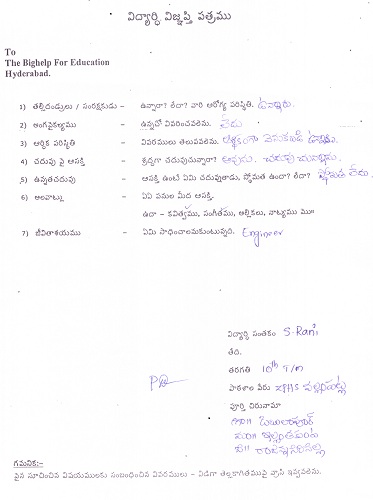 విద్యార్థి విజ్ఞప్తి పత్రము
To
The Bighelp For Education
Hyderabad.
1) తల్లిదండ్రులు / సంరక్షకుడు – ఉన్నారా? లేరా? వారి ఆరోగ్య పరిస్థితి. ఉన్నారు.
2) అంగవైకల్యము – ఉన్నచో వివరించవలెను. లేదు
3) ఆర్థిక పరిస్థితి – వివరములు తెలుపవలెను. వెనుకబడి
4) చదువు పై ఆసక్తి – శ్రద్ధగా చదువుచున్నాడా? అవును.
5) ఉన్నతచదువు – ఆసక్తి ఉంటే ఏమి చదువుతాడు, స్తోమత ఉందా? లేదా? స్తోమత లేదు.
6) అలవాట్లు – ఏఏ పనుల మీద ఆసక్తి.
ఉదా – కవిత్వము, సంగీతము, అల్లికలు, నాట్యము మొ॥
7) జీవితాశయము – ఏమి సాధించాలనుకుంటున్నది. Engineer
విద్యార్థి సంతకం S-Rani
తేది.
తరగతి 10th T/m
పాఠశాల పేరు ZPHS
పూర్తి చిరునామా
గమనిక:-
పైన సూచించిన విషయములకు సంబంధించిన వివరములు – విడిగా తెల్లకాగితముపై వ్రాసి ఇవ్వవలెను.